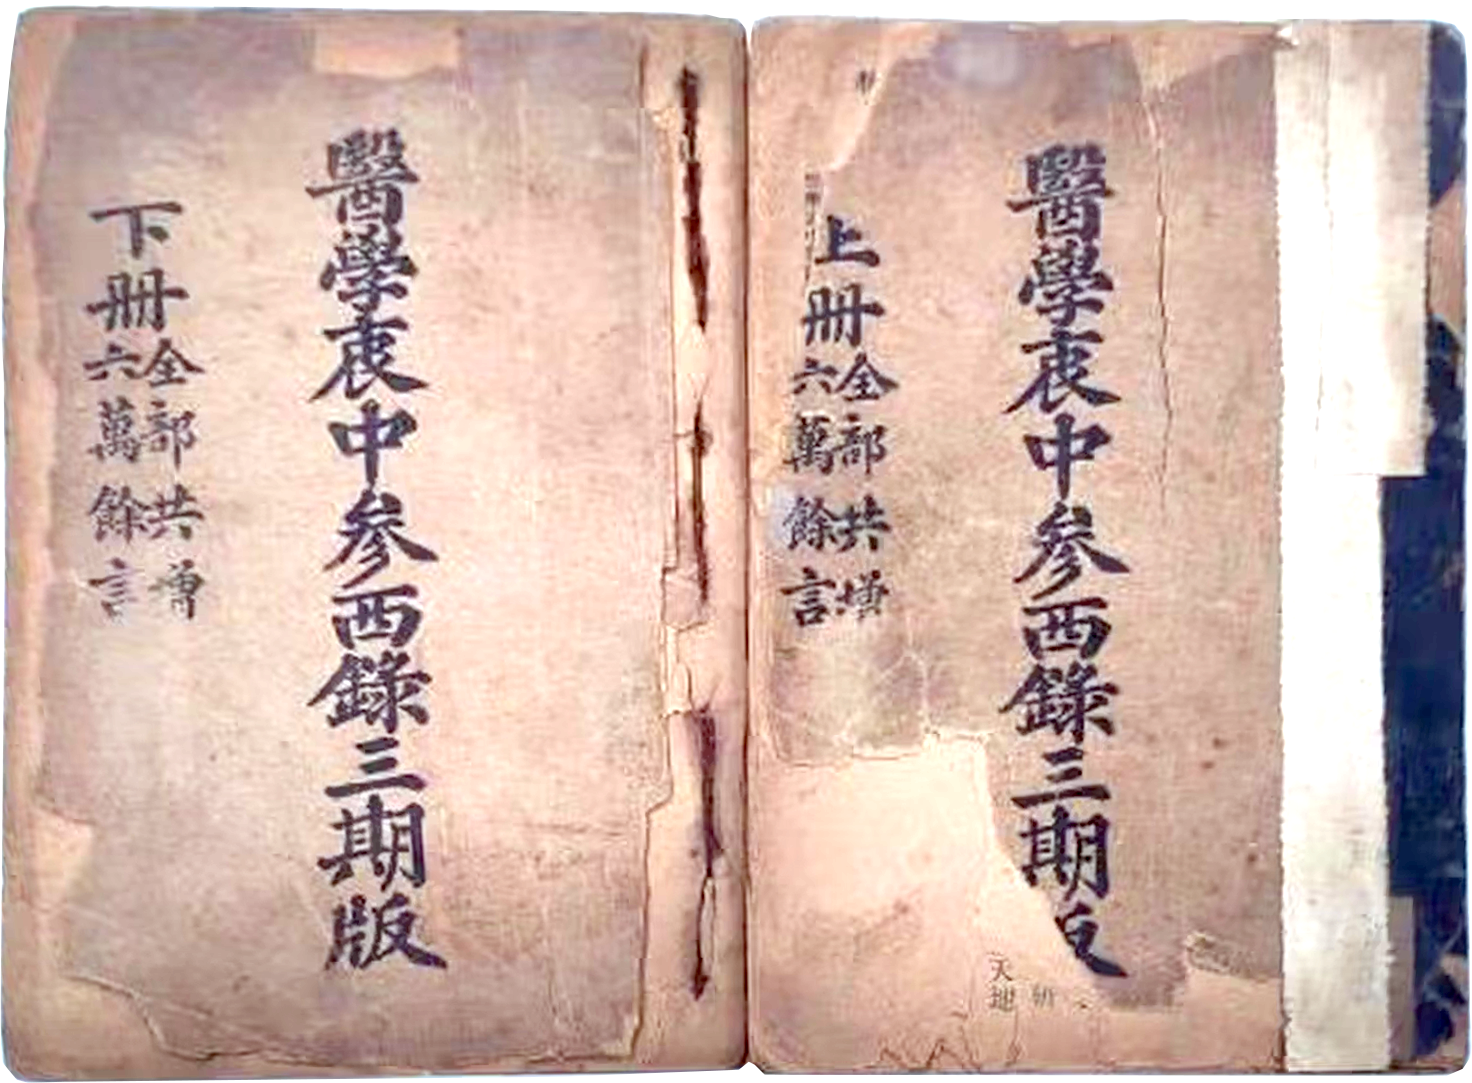 醫學衷中参西錄三期版
上册
全部共增
六萬餘言
天
醫學衷中参西錄三期版
下册
全部共增
六萬餘言